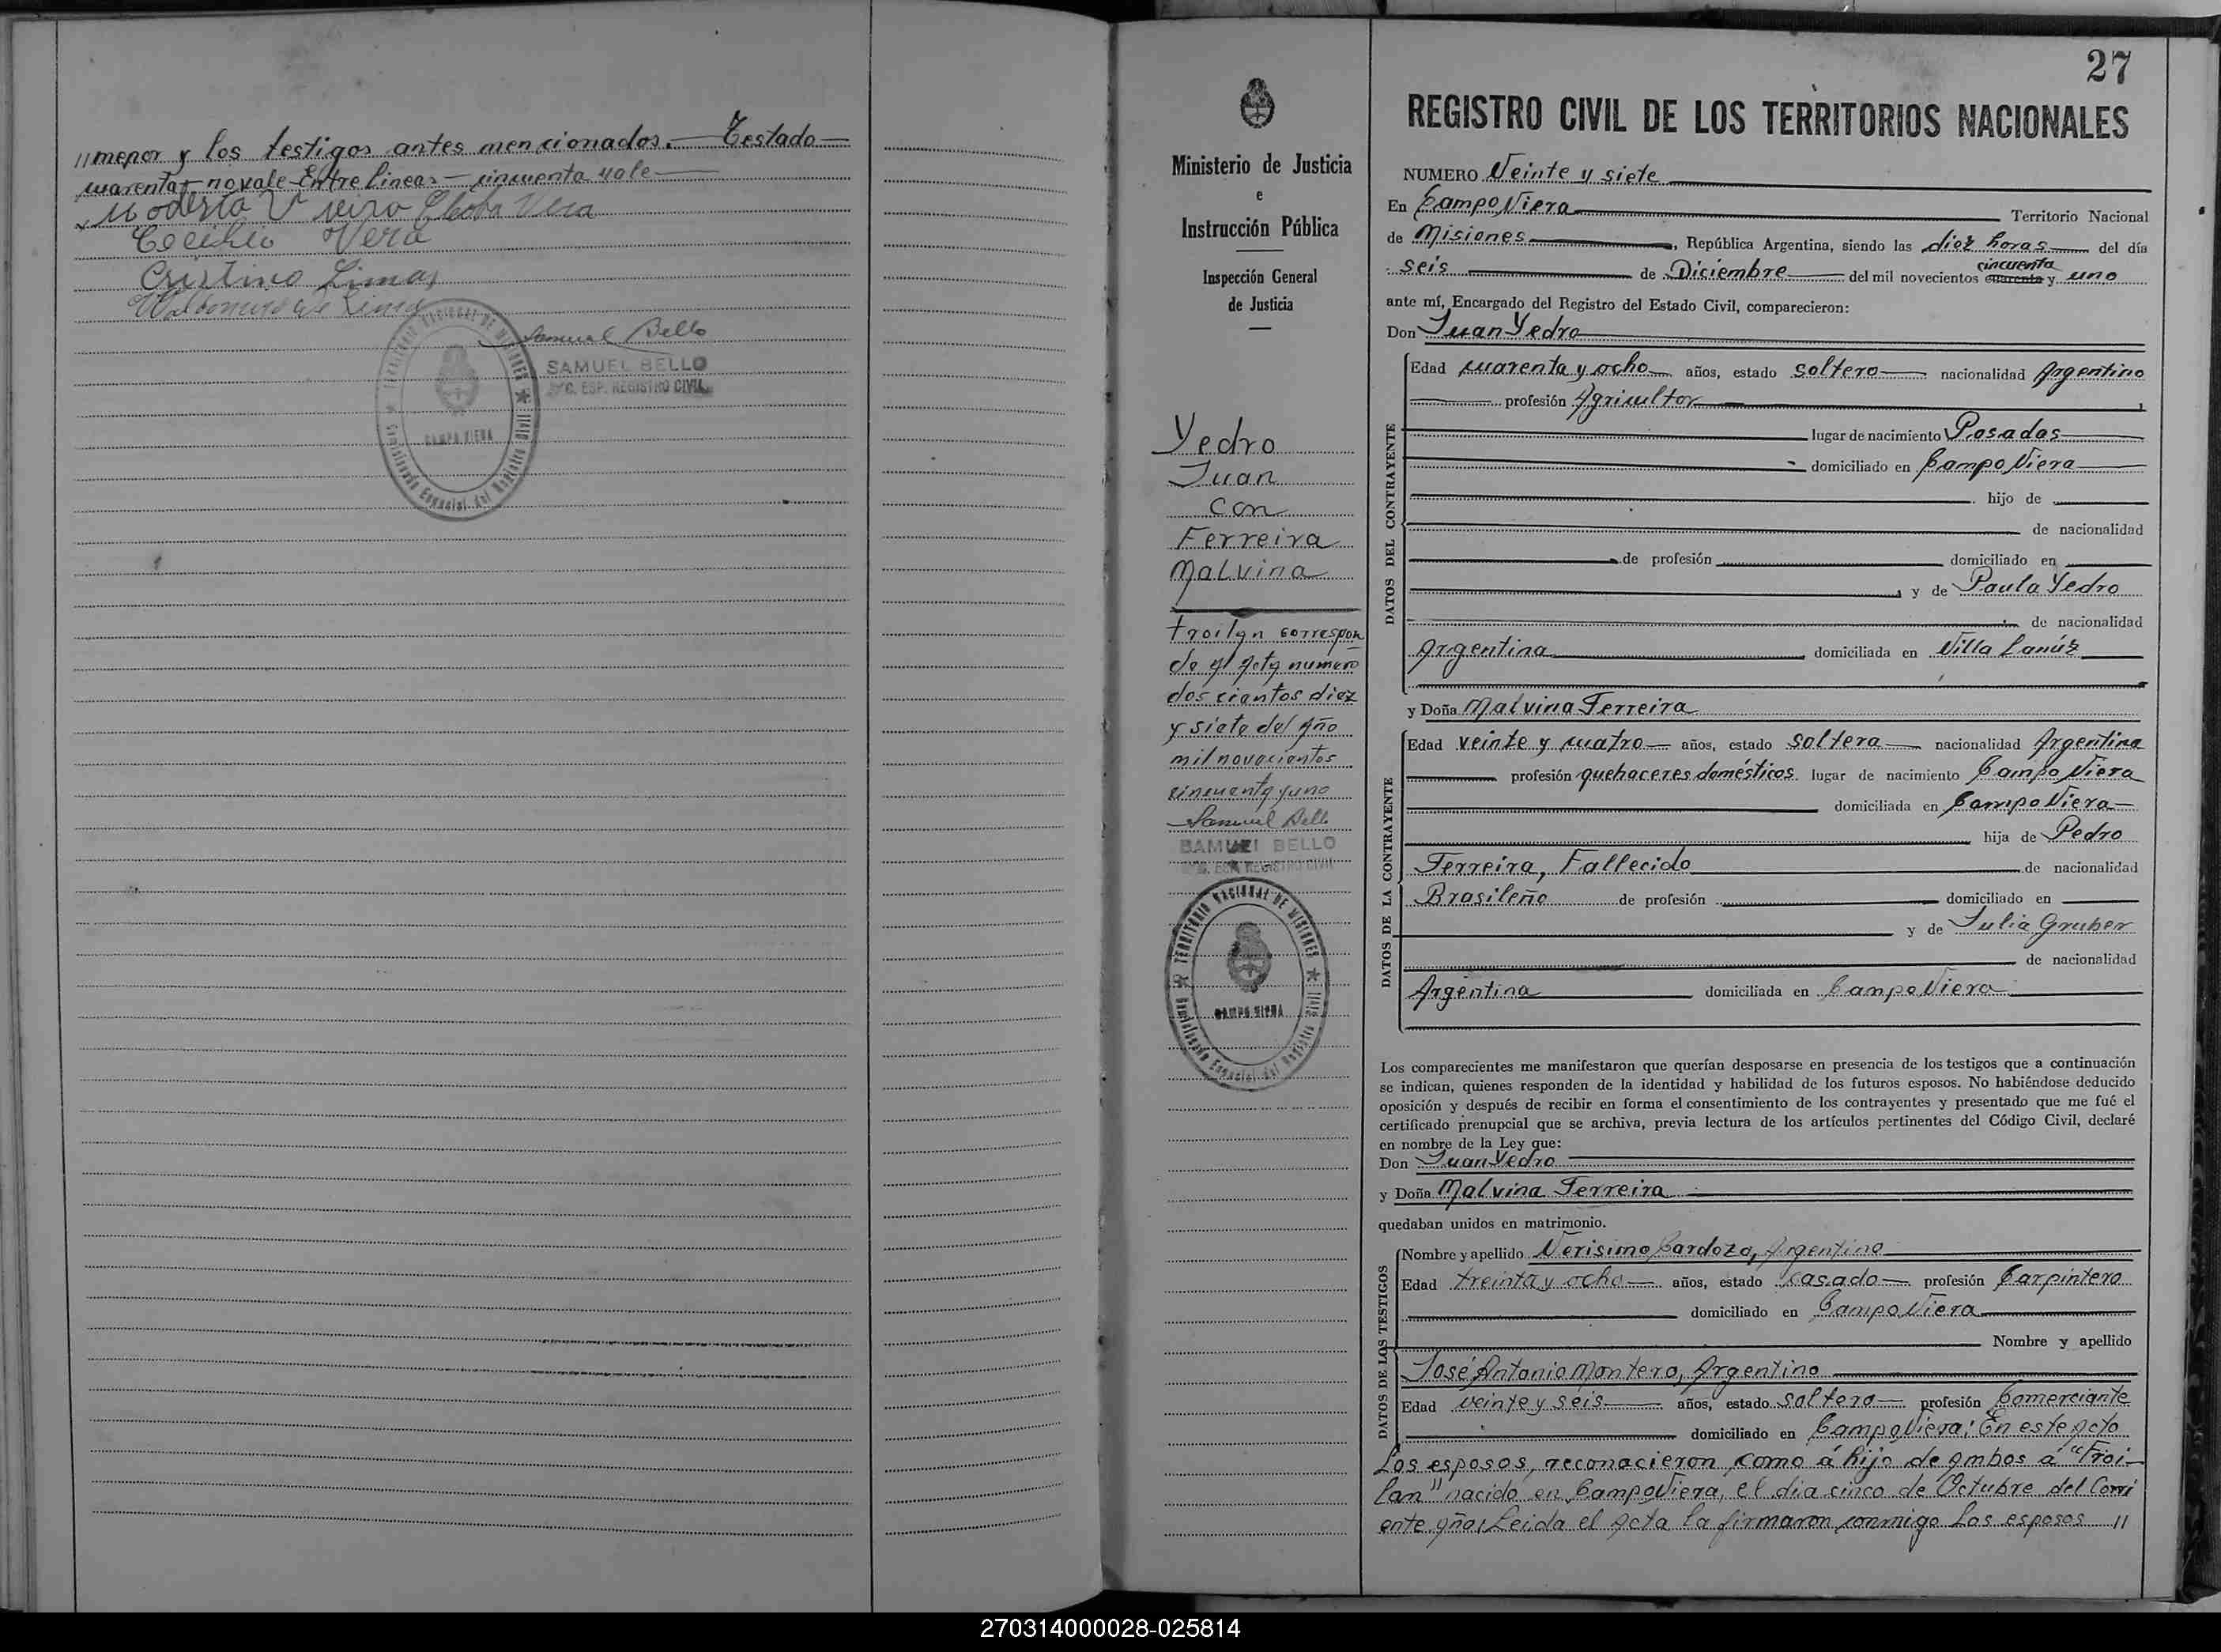 // menor y los testigos antes mencionados.— Testado—
cuarenta - no vale - Entre lineas — cincuenta vale —
Cecilio Vera
Cristino Limas
Samuel Bello
SAMUEL BELLO
C. ESP. REGISTRO CIVIL
CAMPO VIERA
27
Ministerio de Justicia
e
Instrucción Pública
Inspección General
de Justicia
Yedro
Juan
con
Ferreira
Malvina
Froilan correspon
de al Acta numero
dos cientos diez
y siete del año
mil novecientos
cincuenta y uno
Samuel Bello
SAMUEL BELLO
C. ESP. REGISTRO CIVIL
TERRITORIO NACIONAL DE MISIONES
CAMPO VIERA
Comisionado Especial del Registro Civil
REGISTRO CIVIL DE LOS TERRITORIOS NACIONALES
NUMERO Veinte y siete
En Campo Viera Territorio Nacional
de Misiones, República Argentina, siendo las diez horas del día
cincuenta
seis de Diciembre del mil novecientos cuarenta y uno
ante mí, Encargado del Registro del Estado Civil, comparecieron:
Don Juan Yedro
DATOS DEL CONTRAYENTE
Edad cuarenta y ocho años, estado soltero nacionalidad Argentino
profesión Agricultor
lugar de nacimiento Posadas
domiciliado en Campo Viera
hijo de
de nacionalidad
de profesión domiciliado en
y de Paula Yedro
de nacionalidad
Argentina domiciliada en Villa Lanúz
y Doña Malvina Ferreira
DATOS DE LA CONTRAYENTE
Edad veinte y cuatro años, estado soltera nacionalidad Argentina
profesión quehaceres domésticos lugar de nacimiento Campo Viera
domiciliada en Campo Viera
hija de Pedro
Ferreira, Fallecido de nacionalidad
Brasileño de profesión domiciliado en
y de Julia Gruber
de nacionalidad
Argentina domiciliada en Campo Viera
Los comparecientes me manifestaron que querían desposarse en presencia de los testigos que a continuación
se indican, quienes responden de la identidad y habilidad de los futuros esposos. No habiéndose deducido
oposición y después de recibir en forma el consentimiento de los contrayentes y presentado que me fué el
certificado prenupcial que se archiva, previa lectura de los artículos pertinentes del Código Civil, declaré
en nombre de la Ley que:
Don Juan Yedro
y Doña Malvina Ferreira
quedaban unidos en matrimonio.
DATOS DE LOS TESTIGOS
Nombre y apellido Verisimo Cardozo, Argentino
Edad treinta y ocho años, estado casado profesión Carpintero
domiciliado en Campo Viera
Nombre y apellido
José Antonio Montero, Argentino
Edad veinte y seis años, estado soltero profesión Comerciante
domiciliado en Campo Viera; En este acto
Los esposos, reconocieron como á hijo de ambos á "Froi-
lan" nacido en Campo Viera, el dia cinco de Octubre del Corri
ente año; Leida el Acta la firmaron conmigo los esposos //
270314000028-025814